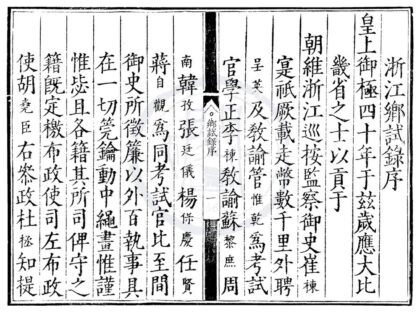 浙江鄉試錄序
皇上御極四十年于茲歲應大比
畿省之士以貢于
朝維浙江巡按監察御史崔棟
寔祇厥載走幣數千里外聘
官學正李棟教諭蘇黎庶周
南韓孜張廷儀楊保慶任賢
蔣自觀為同考試官比至間
御史所徵簾以外百執事具
在一切筦鑰動中繩畫惟謹
惟毖且各籍其所司俾守之
籍既定檄布政使司左布政
使胡堯臣右叅政杜拯知提
鄉試錄序